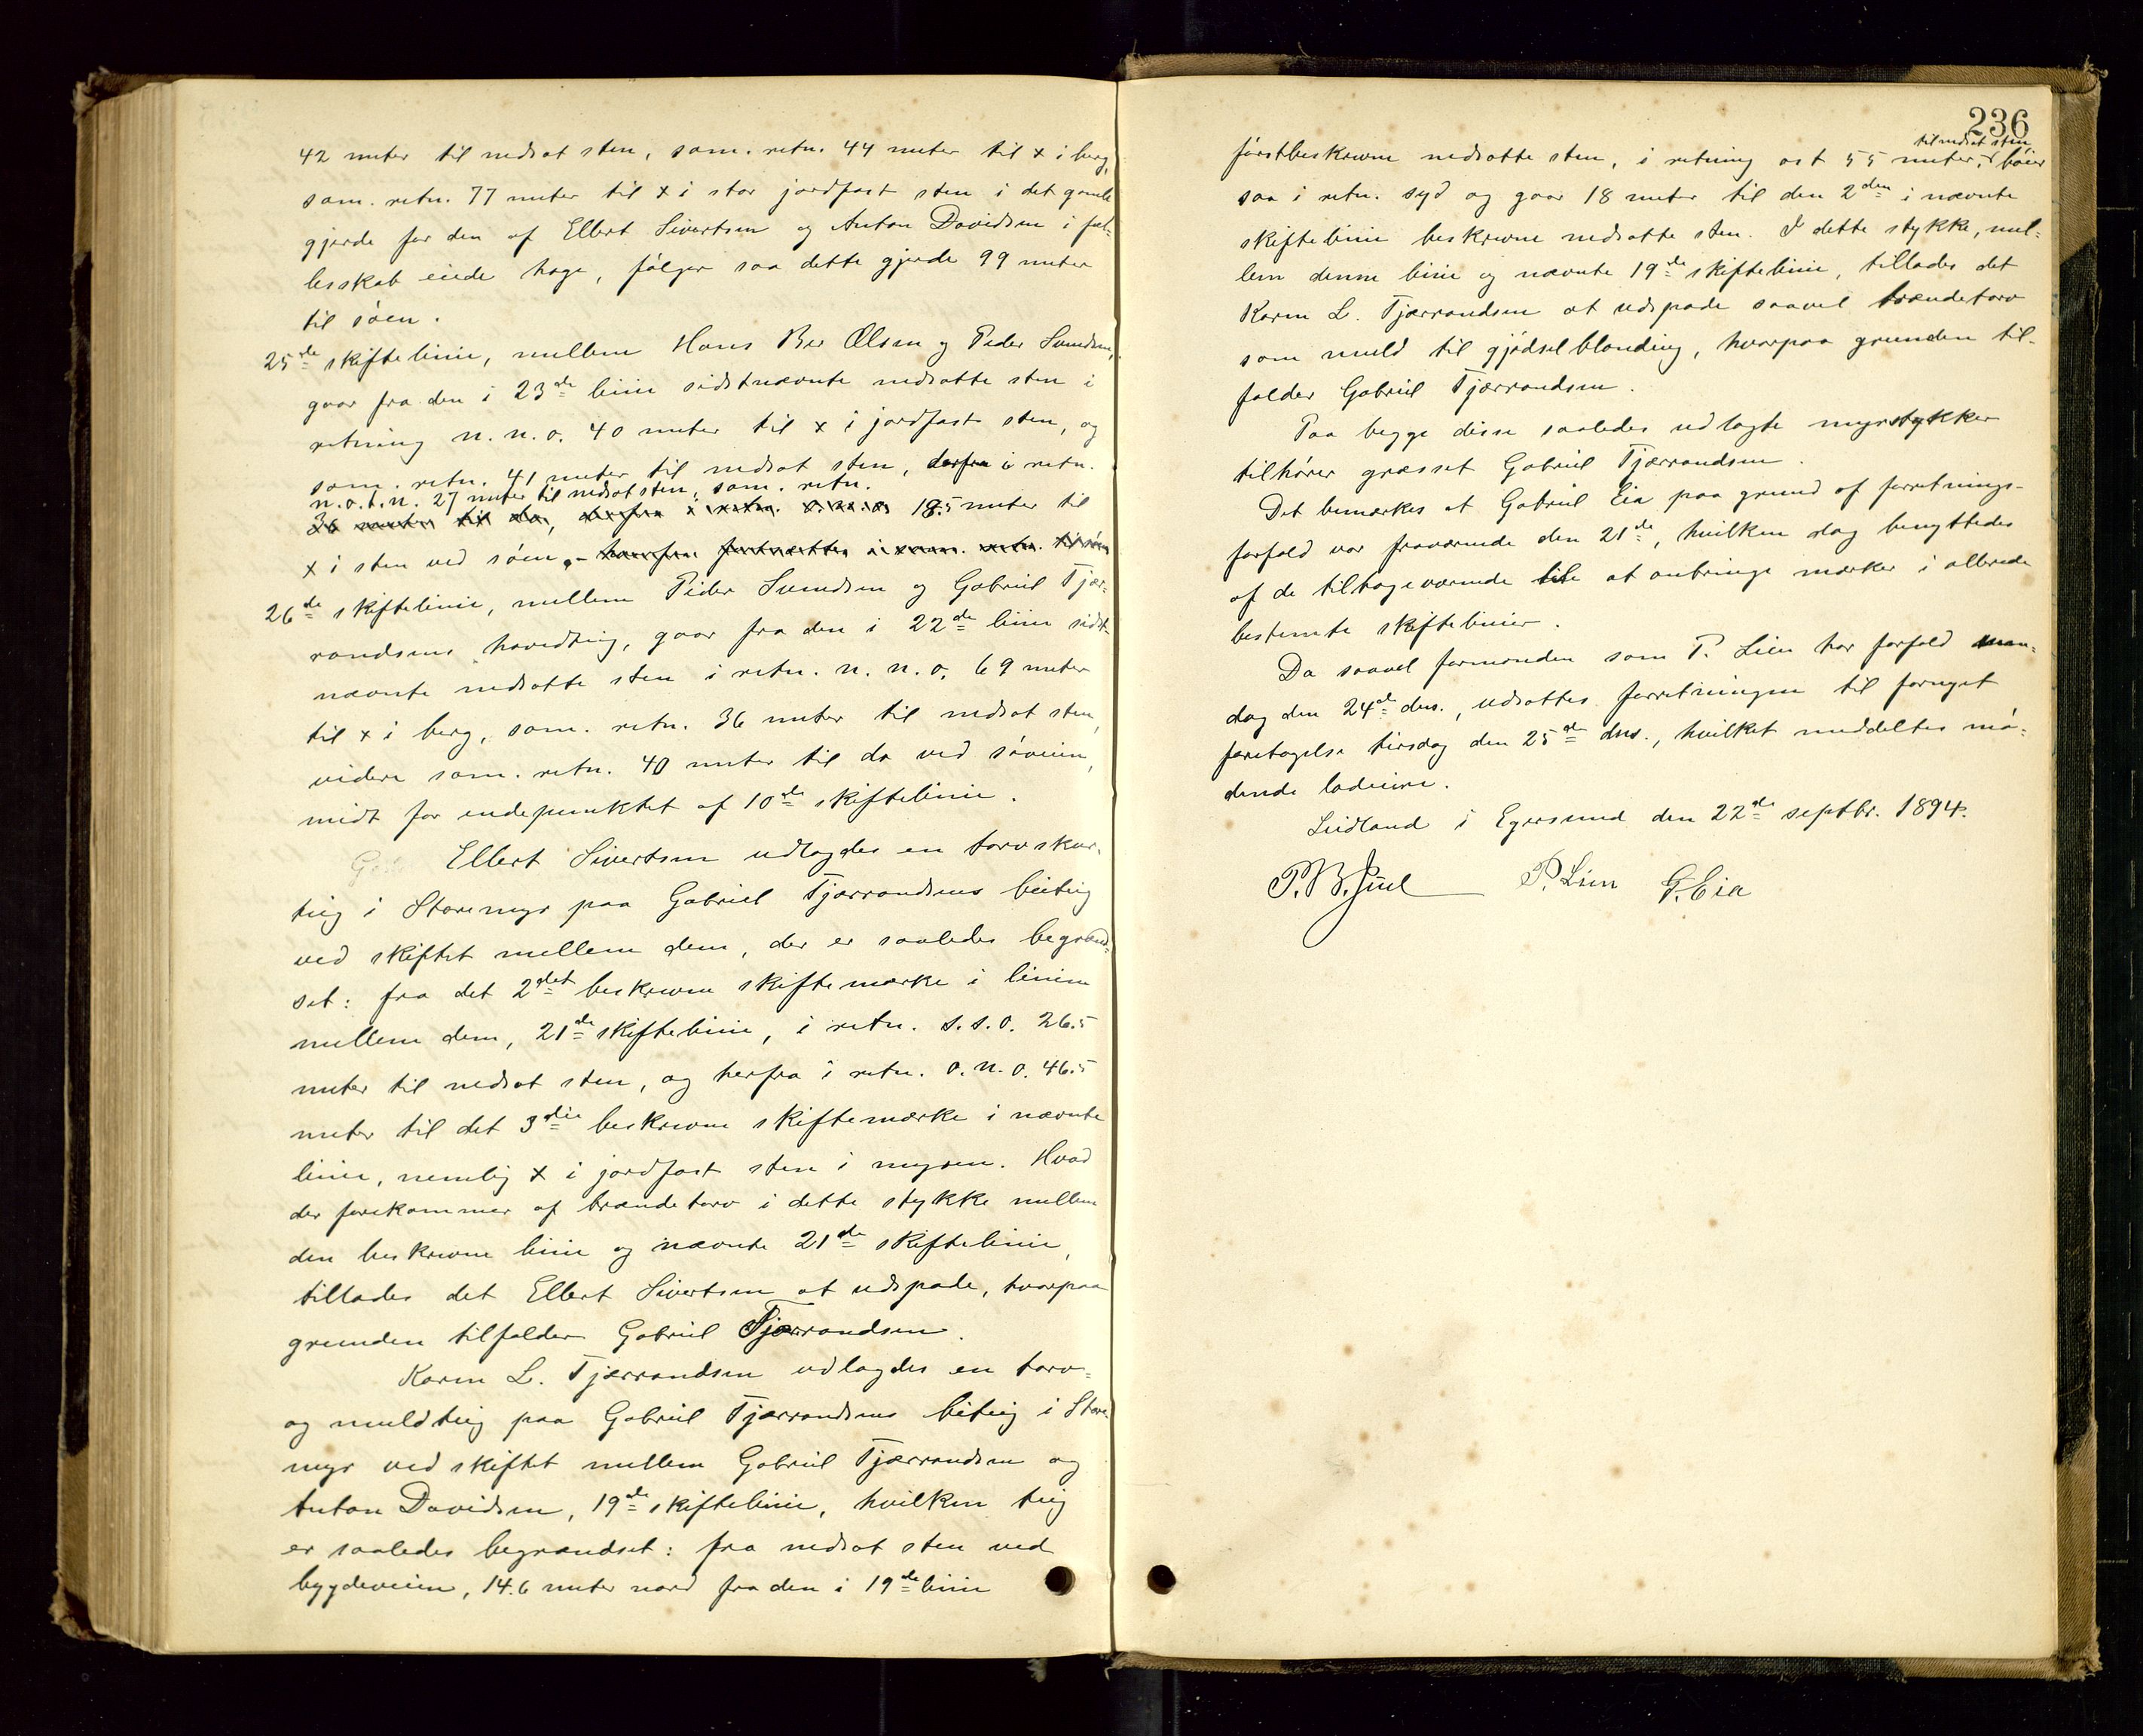 42 meter til nedsat sten, sam. retn. 44 meter til x i berg,
sam. retn. 77 meter til x i stor jordfast sten i det gamle
gjerde for den af Ellert Sivertsen og Anton Davidsen i fæl-
lesskab eiede hage, følger saa dette gjerde 99 meter
til søen.
25de skiftelinie, mellem Hans Ber Olsen og Peder Svendsen,
gaar fra den i 23de linie sidstnævnte nedsatte sten i
retning n. n. o. 40 meter til x i jordfast sten, og
sam. retn. 41 meter til nedsat sten, derfra i retn.
n. o. t. n. 27 meter til nedsat sten, sam. retn.
36 meter til do, derfra i retn. o. n. o. 18.5 meter til
x i sten ved søen. - herfra fortsættes i sam. retn. til søen
26de skiftelinie, mellem Peder Svendsen og Gabriel Tjær-
randsens hovedteig, gaar fra den i 22de linie sidst-
nævnte nedsatte sten i retn. n. n. o. 69 meter
til x i berg, sam. retn. 36 meter til nedsat sten,
videre sam. retn. 40 meter til do ved søveien,
midt for endepunktet af 10de skiftelinie.
Ellert Sivertsen udlagdes en torvskur-
teig i Storemyr paa Gabriel Tjærrandsens beiteig
ved skiftet mellem dem, der er saaledes begrænd-
set: fra det 2det beskrevne skiftemærke i linien
mellem dem, 21de skiftelinie, i retn. s. s. o. 26.5
meter til nedsat sten, og herfra i retn. o. n. o. 46.5
meter til det 3die beskrevne skiftemærke i nævnte
linie, nemlig x i jordfast sten i myren. Hvad
der forekommer af brændetorv i dette stykke mellem
den beskrevne linie og nævnte 21de skiftelinie,
tillades det Ellert Sivertsen at udspade, hvorpaa
grunden tilfalder Gabriel Tjærrandsen.
Karen L. Tjærrandsen udlagdes en torv-
og muldteig paa Gabriel Tjærrandsens beiteig i Store-
myr ved skiftet mellem Gabriel Tjærrandsen og
Anton Davidsen, 19de skiftelinie, hvilken teig
er saaledes begrændset: fra nedsat sten ved
bygdeveien, 14.6 meter nord fra den i 19de linie
236
til nedsat sten
førstbeskrevne nedsatte sten, i retning ost 55 meter, bøier
saa i retn. syd og gaar 18 meter til den 2den i nævnte
skiftelinie beskrevne nedsatte sten. I dette stykke, mel-
lem denne linie og nævnte 19de skiftelinie, tillades det
Karen L. Tjærrandsen at udspade saavel brændetorv
som muld til gjødselblanding, hvorpaa grunden til-
falder Gabriel Tjærrandsen.
Paa begge disse saaledes udlagte myrstykker
tilhører græsset Gabriel Tjærrandsen.
Det bemærkes at Gabriel Eia paa grund af forretnings-
forfald var fraværende den 21de, hvilken dag benyttedes
af de tilbageværende til at anbringe mærker i allerede
bestemte skiftelinier.
Da saavel formanden som P. Lien har forfald man-
dag den 24de dns., udsattes forretningen til fornyet
foretagelse tirsdag den 25de dns., hvilket meddeltes mø-
dende lodeiere.
Leidland i Egersund den 22de septbr. 1894.
P. B. Juel P. Lien G. Eia